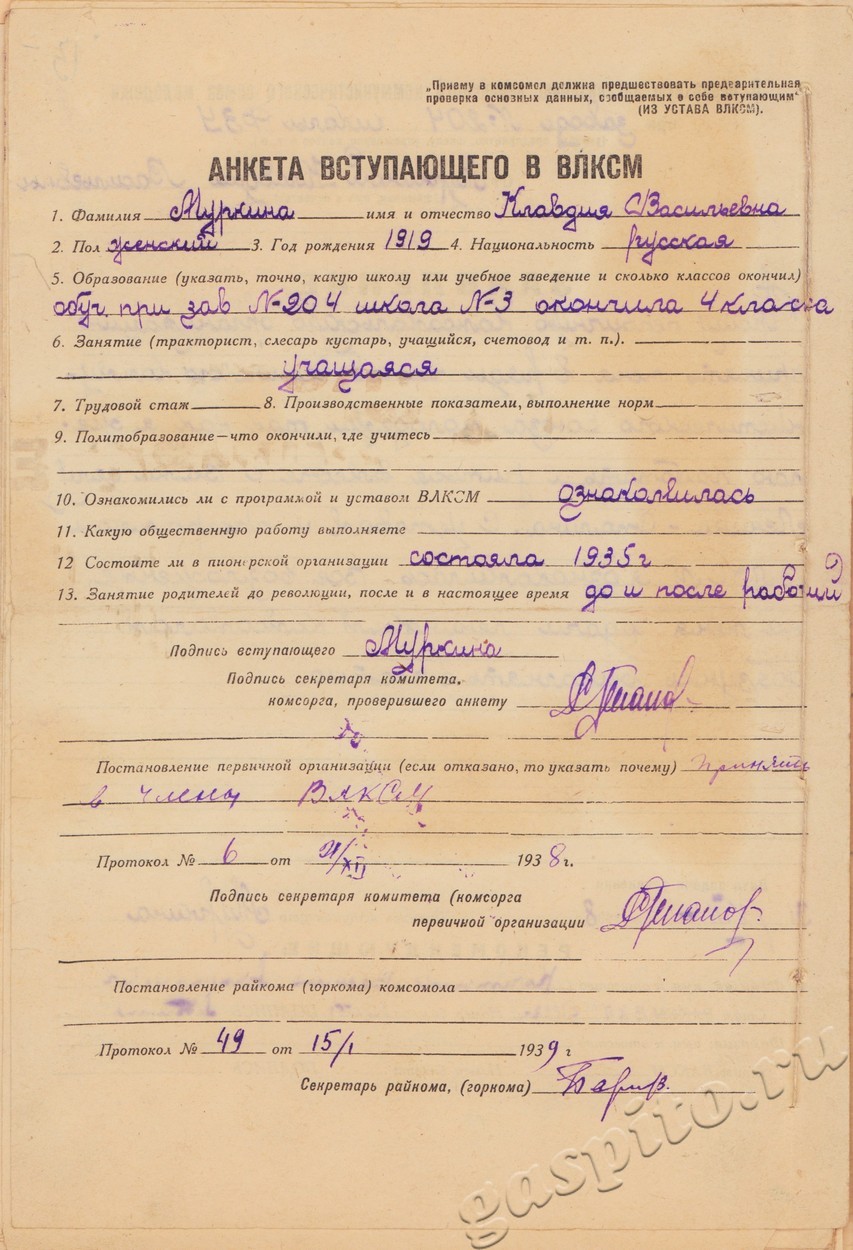 „Приему в комсомол должна предшествовать предварительная
проверка основных данных, сообщаемых о себе вступающим“
(ИЗ УСТАВА ВЛКСМ).
АНКЕТА ВСТУПАЮЩЕГО В ВЛКСМ
1. Фамилия Муркина имя и отчество Клавдия Васильевна
2. Пол женский 3. Год рождения 1919 4. Национальность русская
5. Образование (указать, точно, какую школу или учебное заведение и сколько классов окончил)
обуч. при зав №204 школа №3 окончила 4 класса
6. Занятие (тракторист, слесарь кустарь, учащийся, счетовод и т. п.).
учащаяся
7. Трудовой стаж 8. Производственные показатели, выполнение норм
9. Политобразование—что окончили, где учитесь
10. Ознакомились ли с программой и уставом ВЛКСМ ознакомилась
11. Какую общественную работу выполняете
12 Состоите ли в пионерской организации состояла 1935 г
13. Занятие родителей до революции, после и в настоящее время до и после рабочий
Подпись вступающего Муркина
Подпись секретаря комитета.
комсорга, проверившего анкету
Постановление первичной организации (если отказано, то указать почему) принять
в члены ВЛКСМ
Протокол № 6 от /XII 1938 г.
Подпись секретаря комитета (комсорга
первичной организации
Постановление райкома (горкома) комсомола
Протокол № 49 от 15/I 1939 г
Секретарь райкома, (горкома)
gaspito.ru